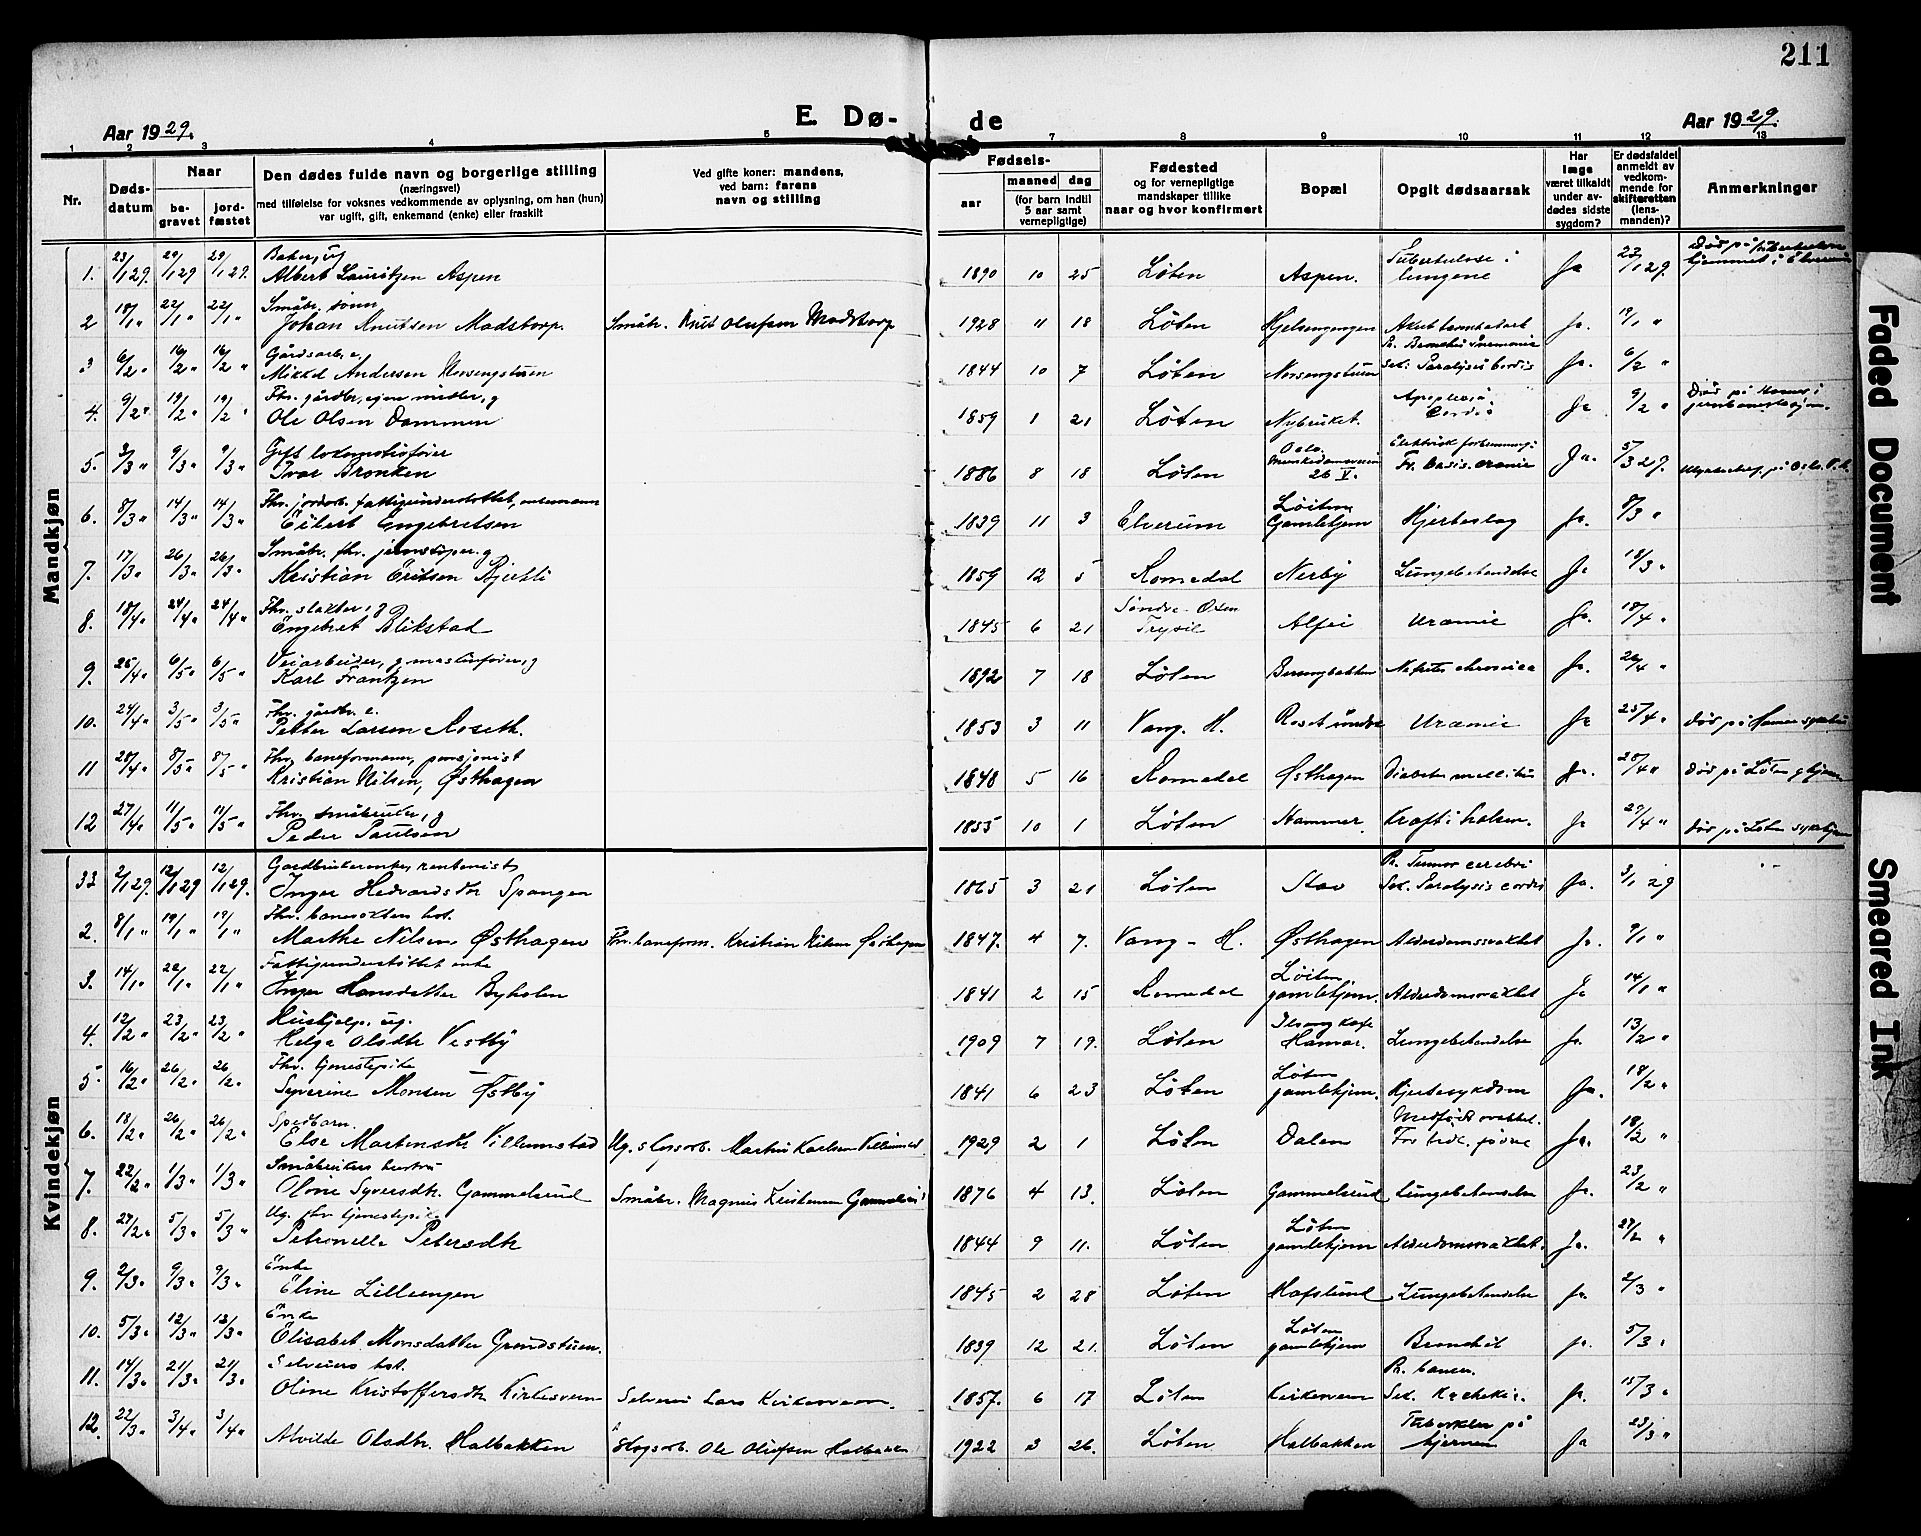 211
E. Dø- de
Aar 1929.
Aar 1929.
1 2 3 4 5 7 8 9 10 11 12 13
Nr.
Døds-
datum
Naar
be-
gravet
jord-
fæstet
Den dødes fulde navn og borgerlige stilling
(næringsvei)
med tilføielse for voksnes vedkommende av oplysning, om han (hun)
var ugift, gift, enkemand (enke) eller fraskilt
Ved gifte koner: mandens,
ved barn: farens
navn og stilling
Fødsels-
aar
maaned dag
(for barn indtil
5 aar samt
vernepligtige)
Fødested
og for vernepligtige
mandskaper tillike
naar og hvor konfirmert
Bopæl
Opgit dødsaarsak
Har
læge
været tilkaldt
under av-
dødes sidste
sygdom?
Er dødsfaldet
anmeldt av
vedkom-
mende for
skifteretten
(lens-
manden)?
Anmerkninger
Mandkjøn
Baker, ug
1. 23/1 29. 29/1 29 29/1 29. Albert Lauritzen Aspen 1890 10 25 Løten Aspen. Tuberkulose i lungene Ja 23/1 29.
Småbr. sønn
2 18/1 " 22/1 " 22/1 " Johan Knutsen Madstorp. Småbr. Knut Olufsen Madstorp 1928 11 18 Løten Ja. 19/1 "
Gårdsarb. e.
3 6/2 " 16/2 " 16/2 " Mikkel Andersen Norsengstuen 1844 10 7 Løten Norsengstuen Sek: Paralysis cordis Ja. 6/2 "
Fhv. gårdbr., g
4. 9/2 " 19/2 " 19/2 " Ole Olsen Dammen 1859 1 21 Løten Nybruket. Ja 9/2 " Død på Hamar
Gift lokomotivfører
5. 3/3 " 9/3 " 9/3 " Ivar Bronken 1886 8 18 Løten Oslo 26 V. Ja. 5/3 29.
Fhv. jordarb. fattigunderstøttet, enkemann
6. 8/3 " 14/3 " 14/3 " Eilert Engebretsen 1839 11 3 Elverum Løiten Gamlehjem Hjerteslag Ja. 8/3 "
Småbr. fhv. g
7. 17/3 " 26/3 " 26/3 " Kristian Eriksen Bjerkli 1859 12 5 Romedal Nerby Lungebetendelse Ja 18/3 "
Fhv. slakter, g
8. 18/4 " 24/4 " 24/4 " Engebret Blikstad 1845 6 21 Søndre Osen Trysil Uræmie Ja. 18/4 "
Veiarbeider, g
9. 25/4 " 6/5 " 6/5 " Karl Frantzen 1892 7 18 Løten Ja. 26/4 "
Fhv. gårdbr. e.
10. 24/4 " 3/5 " 3/5 " Petter Larsen Roseth. 1853 3 11 Vang. H. Roset søndre Uræmie Ja 25/4 " Død på Hamar
Fhv. baneformann, pensjonist
11 28/4 " 8/5 " 8/5 " Kristian Nilsen, Østhagen 1848 5 16 Romedal Østhagen Diabetes mellitus Ja. 28/4 " Død på Løten
Fhv. småbruker, g
12 27/4 " 11/5 " 11/5 " Peder Paulsen 1855 10 1 Løten Hammer. Kræft i halsen. Ja 27/4 " Død på Løten sykehjem
Kvindekjøn
Gardbrukerenke, rentenist
33 2/1 29. 12/1 29 12/1 29. Inger Hedvardsdtr Spangen 1865 3 21 Løten Stav Pr. Tumor cerebri Sek. Paralysis cordis Ja. 3/1 29
Fhv. hst.
2. 8/1 " 19/1 " 19/1 " Marthe Nilsen Østhagen Fhv. baneform. Kristian Nilsen Østhagen 1847. 4 7. Vang - H. Østhagen Alderdomssvakhet Ja. 9/1 "
Fattigunderstøttet enke
3. 14/1 " 22/1 " 22/1 " Inger Hansdatter Byholen 1841 2 15 Romedal Løiten gamlehjem. Alderdomssvakhet Ja 14/1 "
Hushjelp, ug.
4. 12/2 " 23/2 " 23/2 " Helga Olsdtr Vestby 1909 7 19. Løten Hamar. Lungebetendelse Ja. 13/2 "
Fhv. tjenestepike
5 16/2 " 26/2 " 26/2 " Syverine Monsen Østby 1841 6 23 Løten Løten gamlehjem. Hjertesykdom Ja. 18/2 "
Spedbarn.
6. 18/2 " 26/2 " 26/2 " Else Martinsdtr Villumstad Ug. skogsarb. Martin Karlsen Villumstad 1929 2 1 Løten Dalen Medfødt svakhet. For tidl. fødsel Ja. 18/2 "
Småbrukers hustru
7. 22/2 " 1/3 " 1/3 " Oline Syversdtr. Gammelsrud Småbr. Magnus Kristiansen Gammelsrud 1876 4 13. Løten Gammelsrud Lungebetendelse Ja. 23/2 "
Ug. fhv. tjenestepike
8. 27/2 " 5/3 " 5/3 " Petronelle Petersdtr 1844 9 11. Løten Løten gamlehjem Alderdomssvakhet. Ja. 27/2 "
Enke
9. 2/3 " 9/3 " 9/3 " Eline Lilleengen 1845 2 28 Løten Hafslund Lungebetendelse Ja. 2/3 "
Enke
10. 5/3 " 12/3 " 12/3 " Elisabet Monsdatter Grundstuen. 1839 12 21. Løten Løten gamlehjem Bronchit Ja. 5/3 "
Selveiers hst.
11. 14/3 " 21/3 " 21/3 " Oline Kristoffersdtr Kirkesveen Selveier Lars Kirkesveen. 1857. 6 17 Løten Kirkesveen Pr. cancer. Sek. Kachexi. Ja. 15/3 "
12. 22/3 " 3/4 " 3/4 " Alvilde Olsdtr. Halbakken Skogsarb. Ole Olufsen Halbakken 1922 3 26. Løten Halbakken Tuberkler på hjernen Ja 23/3 "
Faded Document
Smeared Ink